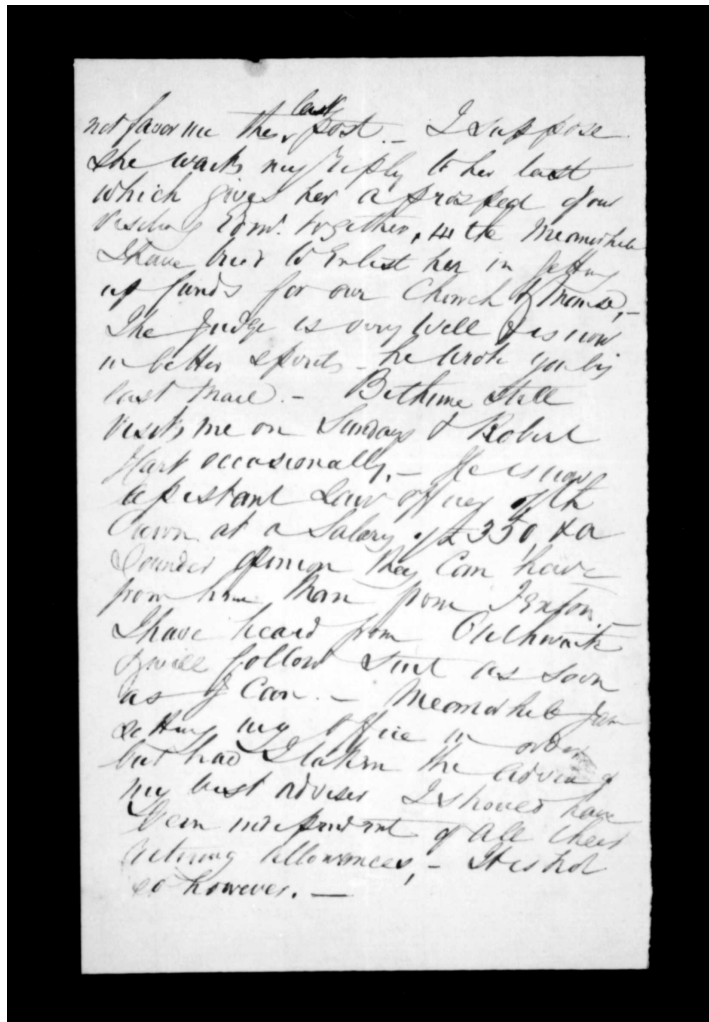 not favor me the last post. - I suppose
she waits my reply to her last
which gives her a prospect of our
visiting Edinr. together, in the meanwhile
I have tried to Enlist her in getting
up funds for our Church &
The Judge is very well & is now
in better spirits - he wrote you by
last mail. - Bethune still
visits me on Sundays & Robert
Hart occasionally. - He is now
assistant Law officer of the
Crown at a Salary of £350, & a
sounder opinion they can have
from him than from Fenton.
I have heard from Outhwaite
& will follow suit as soon
as I can. - Meanwhile I am
setting my office in order
but had I taken the advice of
my best adviser I should have
been independent of all their
retiring allowances, - It is not
so however. -